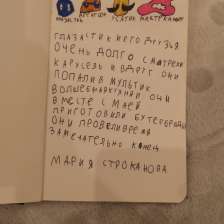 ГЛАЗАСТИК И ЕГО ДРУЗЬЯ
ОЧЕНЬ ДОЛГО СМОТРЕЛИ
КАРУСЕЛЬ И ВДРУГ ОНИ
ПОПАЛИ В МУЛЬТИК
ВОЛШЕБНАЯ КУХНЯ ОНИ
ВМЕСТЕ С МАЕЙ
ПРИГОТОВИЛИ БУТЕРБРОДЫ
ОНИ ПРОВЕЛИ ВРЕМЯ
ЗАМЕЧАТЕЛЬНО КОНЕЦ
МАРИЯ СТРОКАНОВА